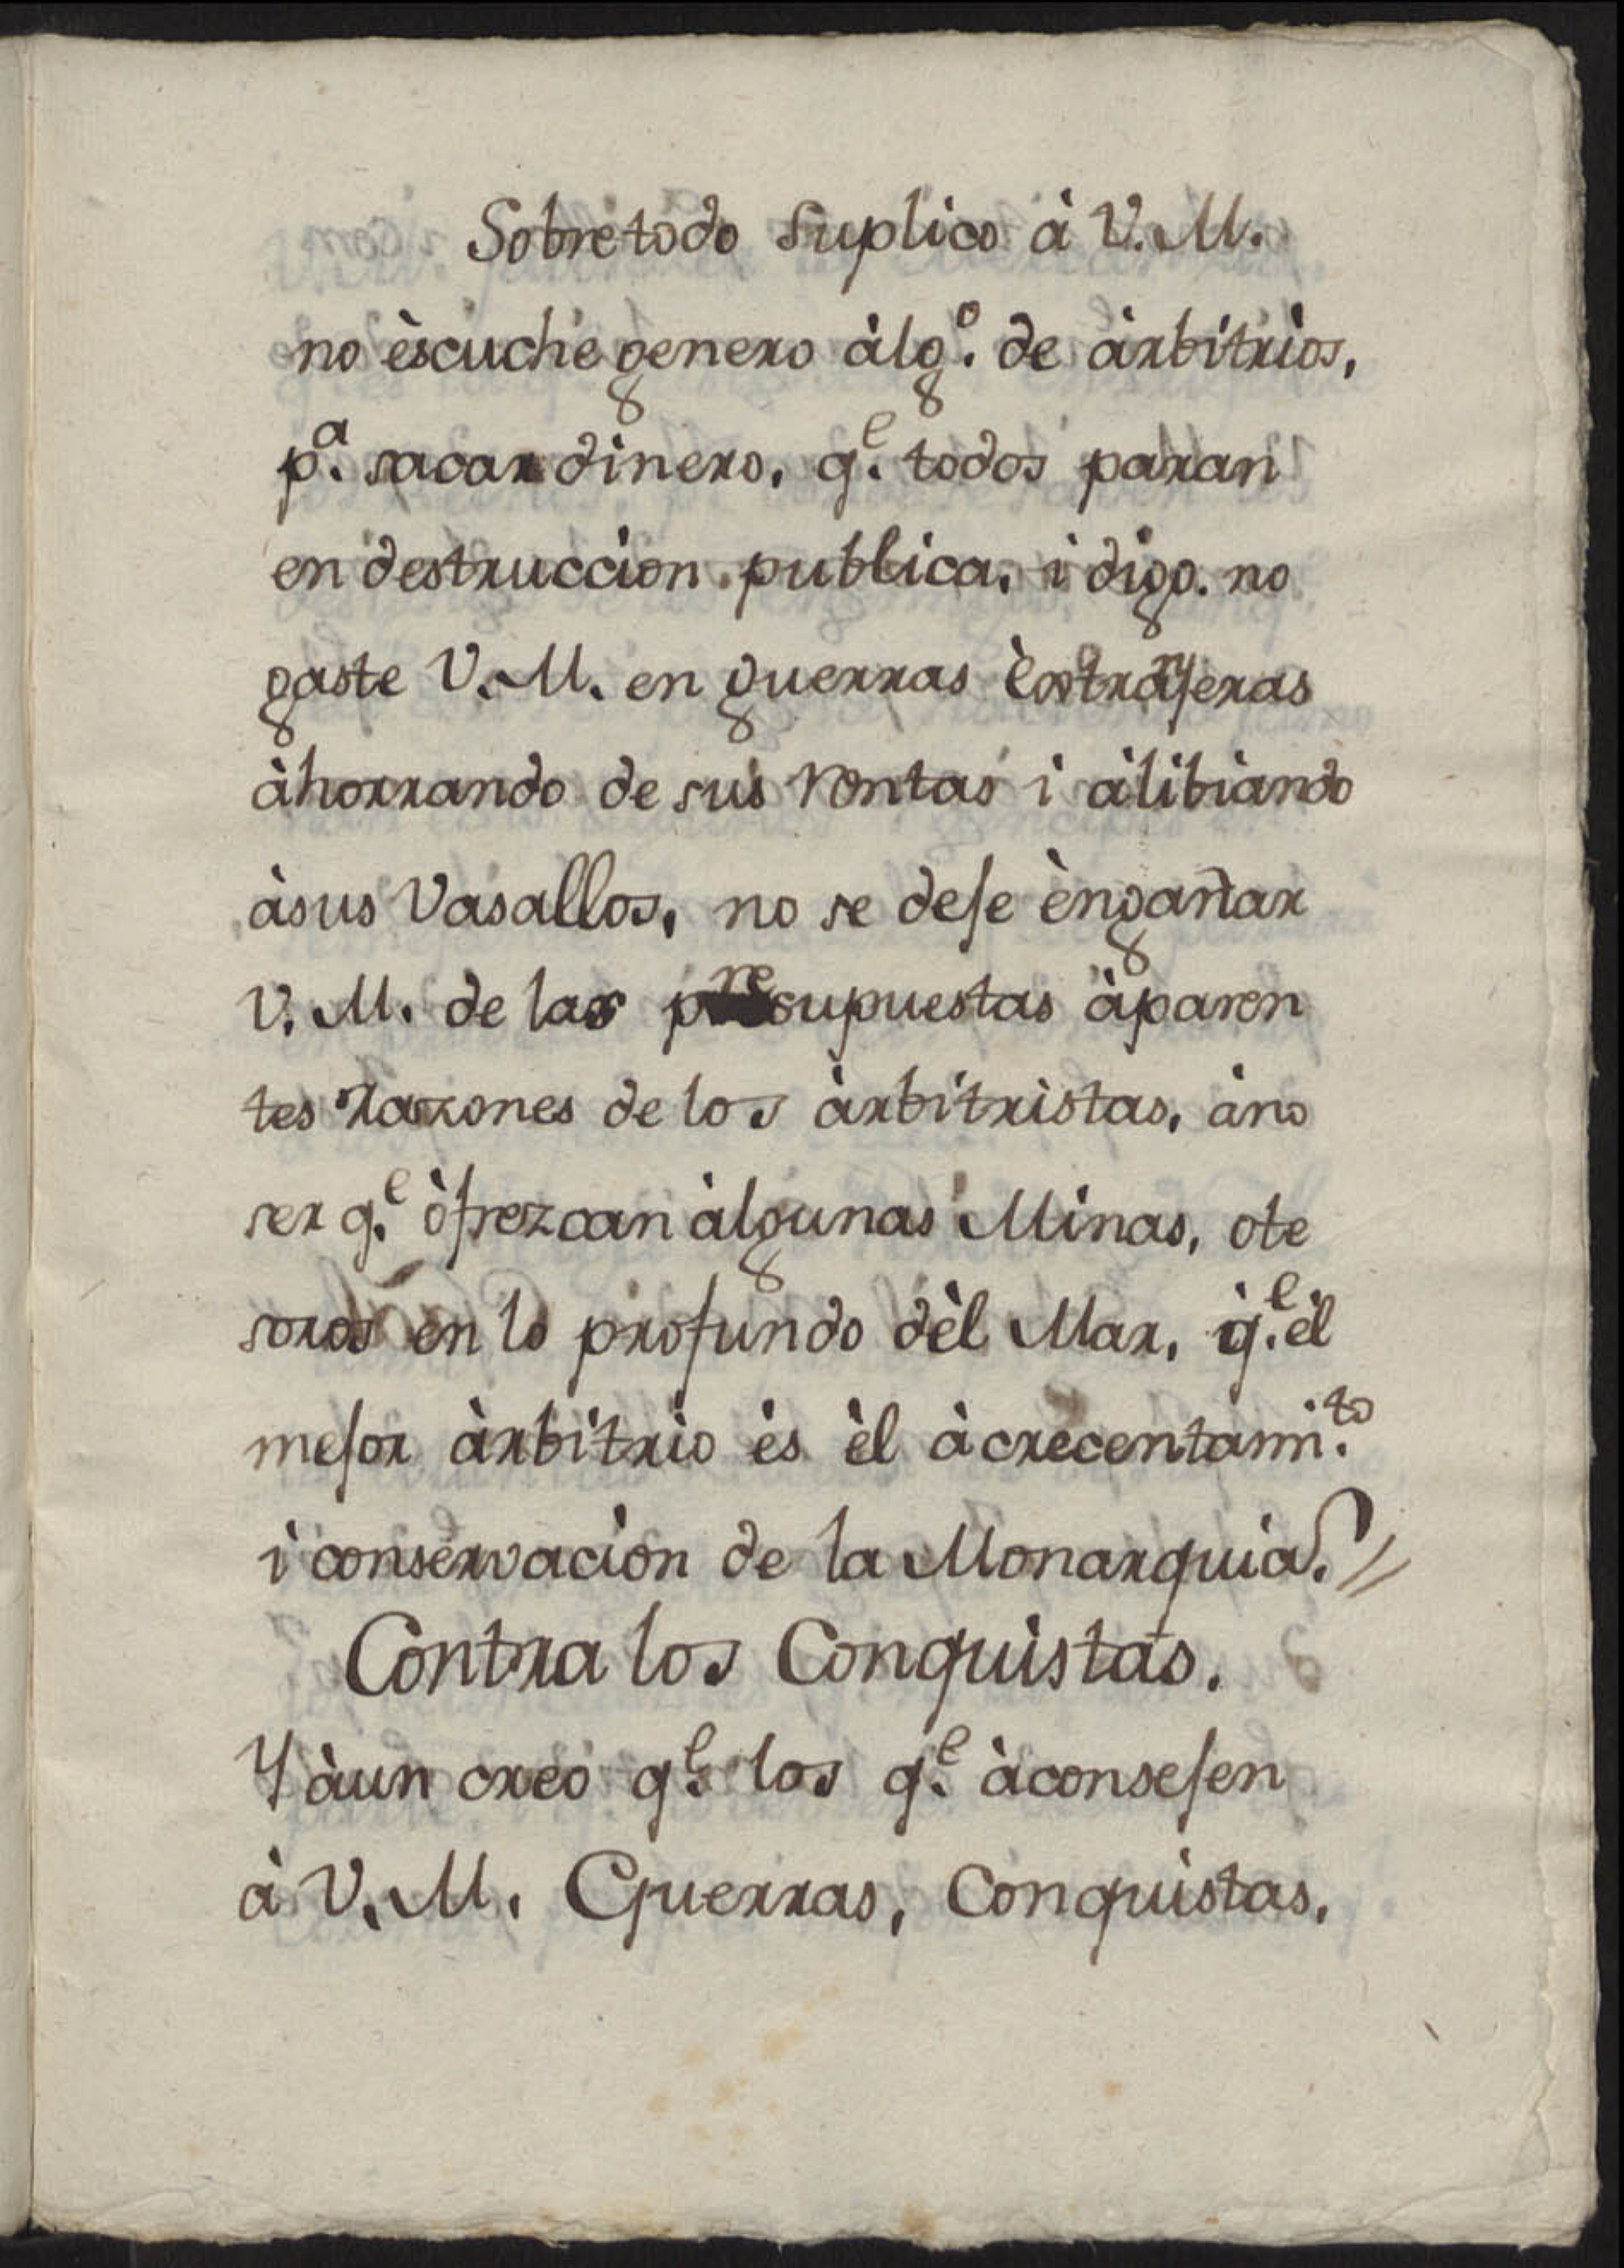 Sobre todo suplico à V. M.
no èscuche genero àlg.º de àrbitrios,
p.ª sacar dinero, q.e todos paran
en destruccion publica, i digo. no
gaste V. M. en guerras èxtranjeras
àhorrando de sus rentas i àlibiando
àsus Vasallos, no se deje èngañar
V. M. de las presupuestas àparen
tes razones de los àrbitristas, àno
ser q.e òfrezcan àlgunas Minas, ote
soros en lo profundo dèl Mar, q.e èl
mejor àrbitrio ès èl àcrecentami.to
i conservacion de la Monarquia.
Contra los Conquistas.
Y àun creo q.e los q.e àconsejen
à V. M. Guerras, Conquistas,